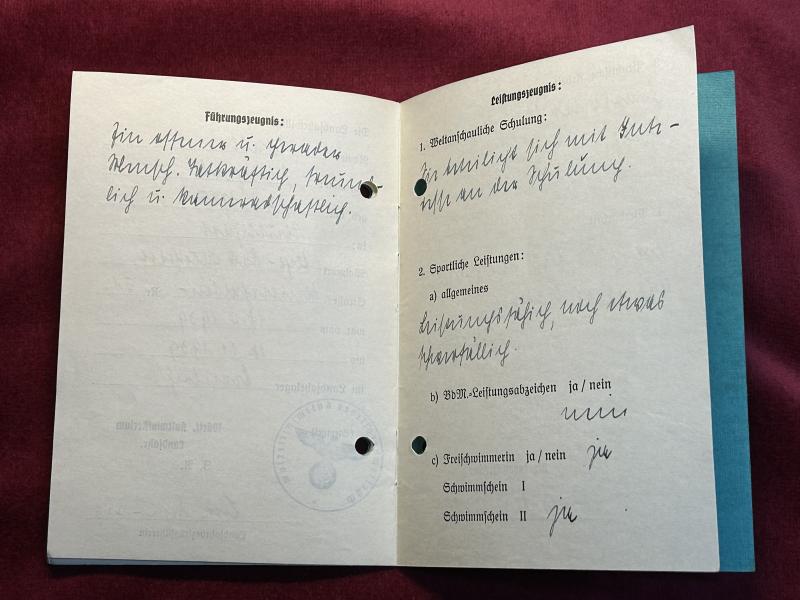 Führungszeugnis:
Ein offener u. gerader
Mensch. Tatkräftig, freund-
lich u. kameradschaftlich.
Leistungszeugnis:
1. Weltanschauliche Schulung:
Sie beteiligt sich mit Inte-
resse an der Schulung.
2. Sportliche Leistungen:
a) allgemeines
Leistungsfähig, noch etwas
schwerfällich.
b) BdM.-Leistungsabzeichen ja / nein
nein
c) Freischwimmerin ja / nein ja
Schwimmschein I
Schwimmschein II ja